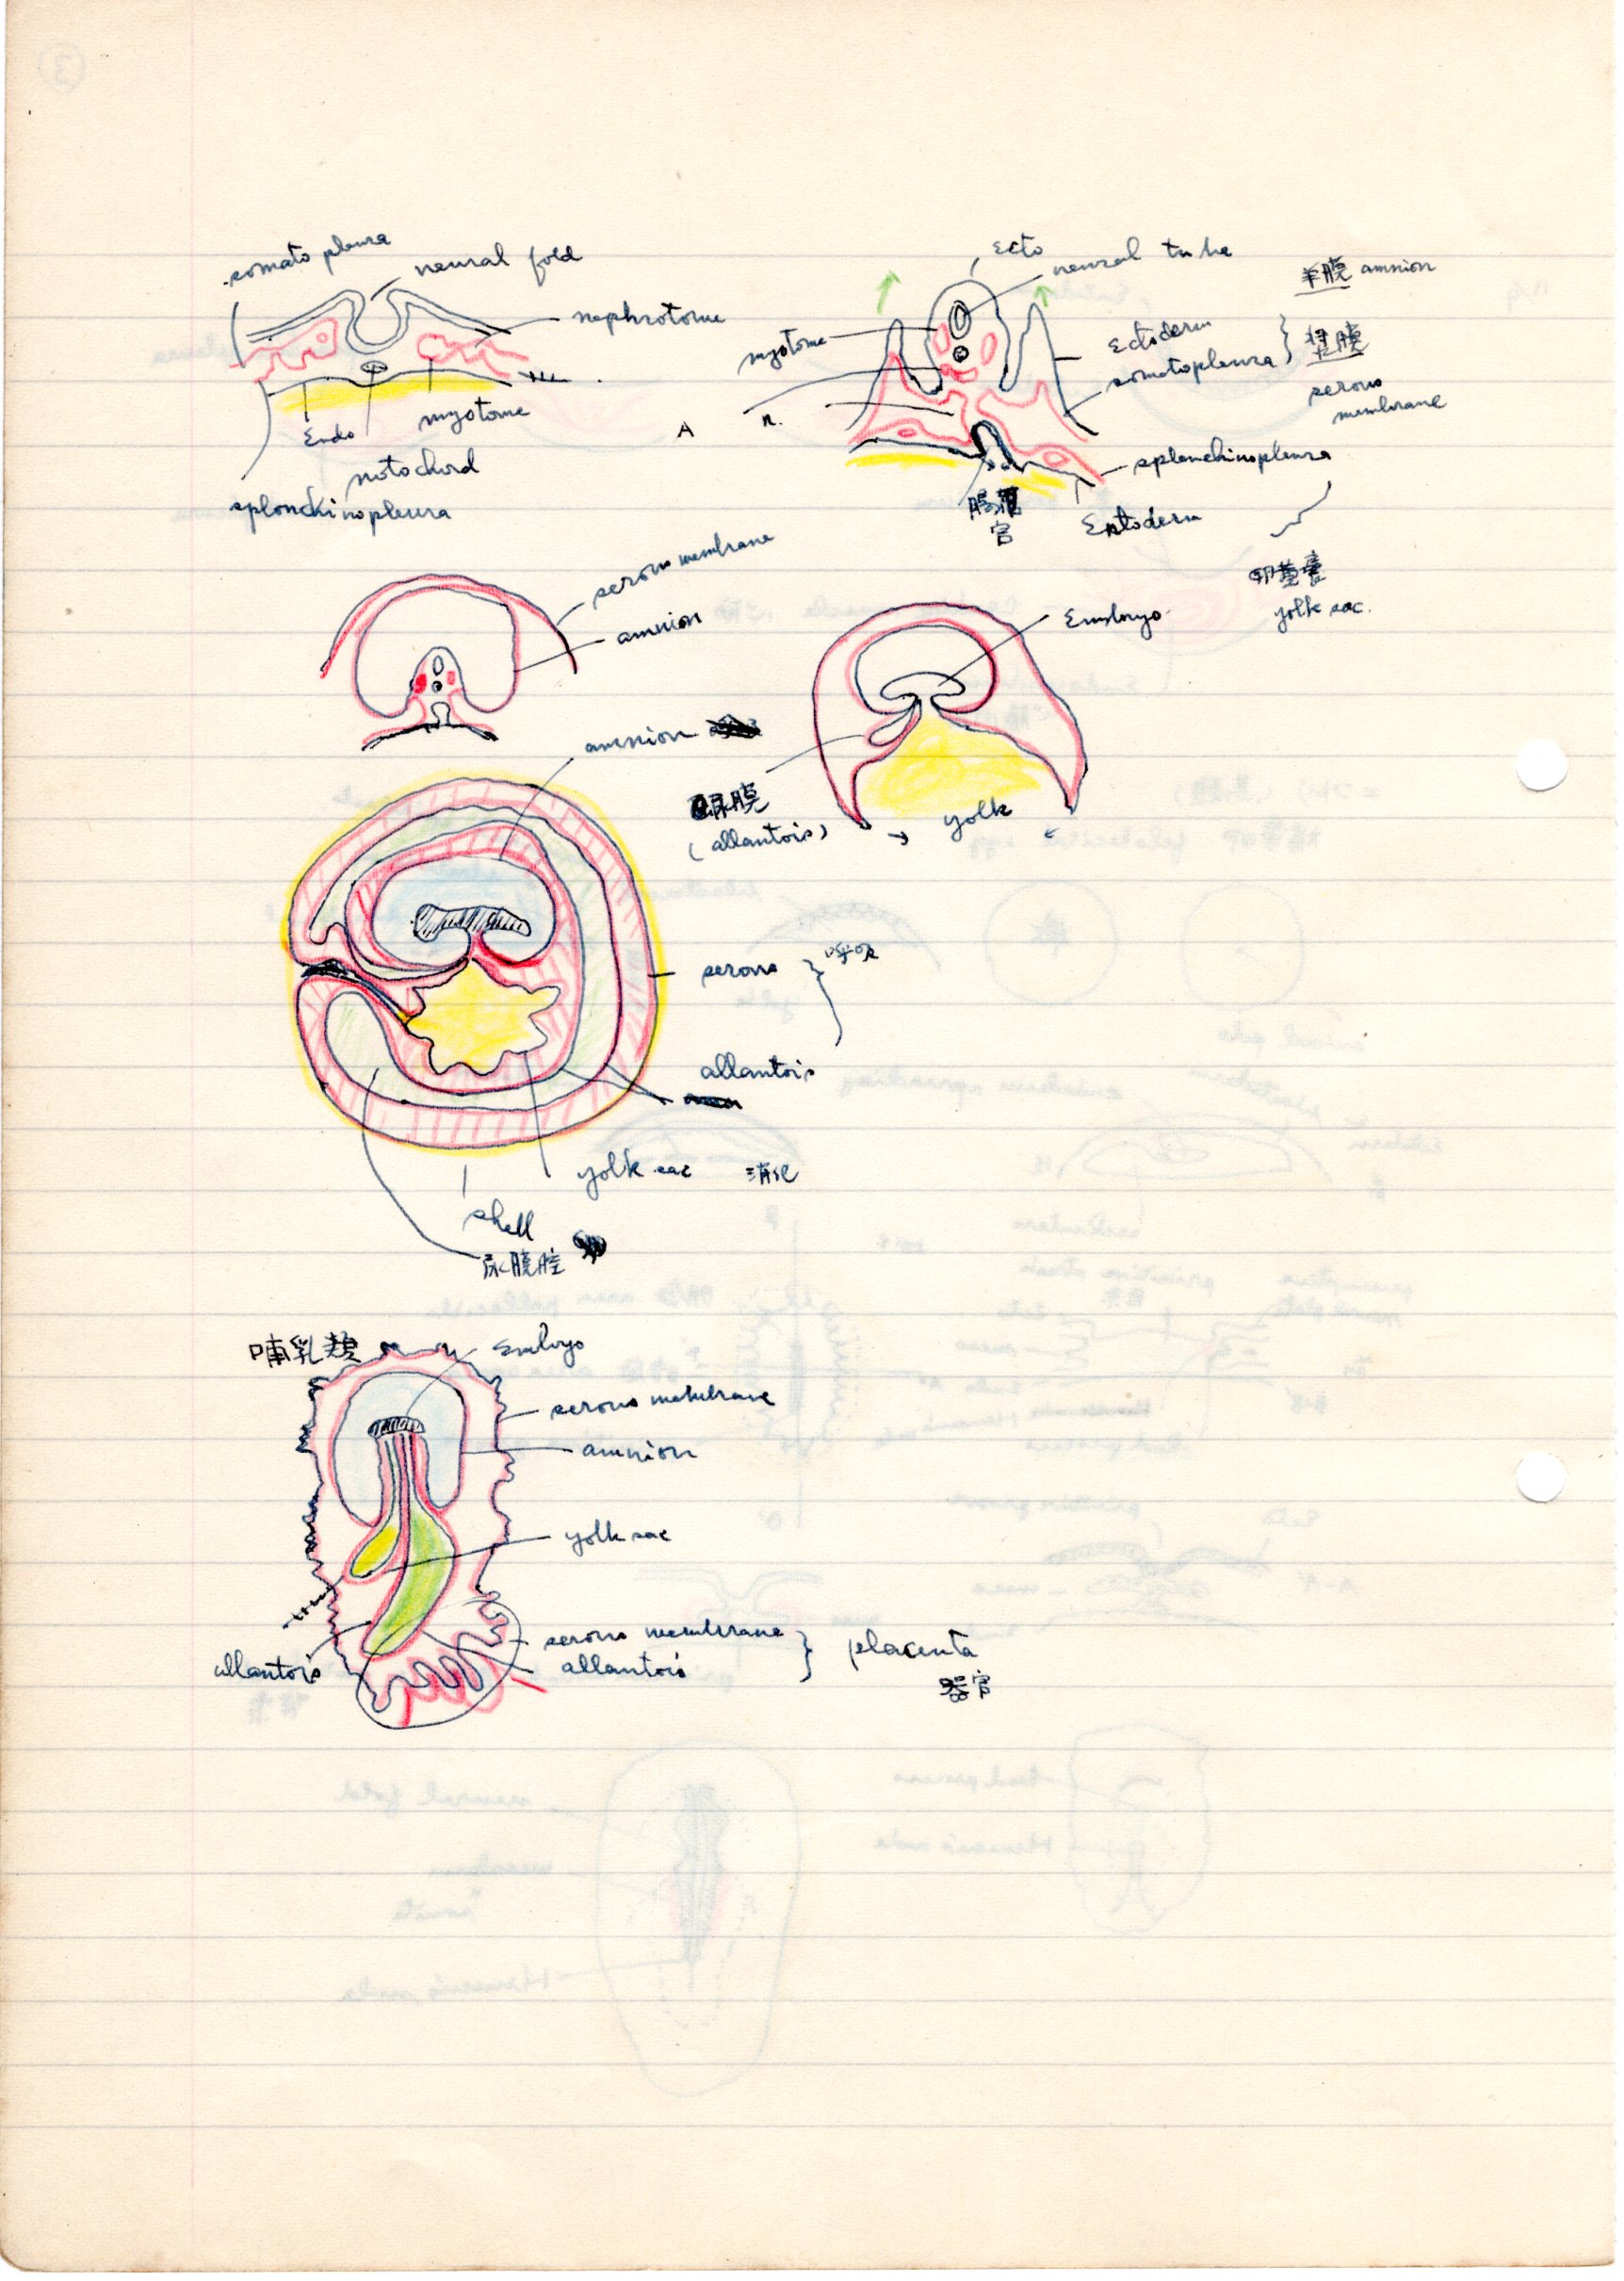 somatopleura
neural fold
nephrotome
Endo
myotome
notochord
splonchinopleura
Ecto
neural tube
羊膜 amnion
myotome
Ectoderm
somatopleura
漿膜
serous
membrane
A
n.
splanchinopleura
腸
官
Entoderm
卵黄嚢
yolk sac.
serous membrane
amnion
Embryo
amnion
尿膜
(allantois)
yolk
serous
呼吸
allantois
yolk sac 消化
shell
尿膜腔
哺乳類
Embryo
serous membrane
amnion
yolk sac
allantois
serous membrane
allantois
placenta
器官